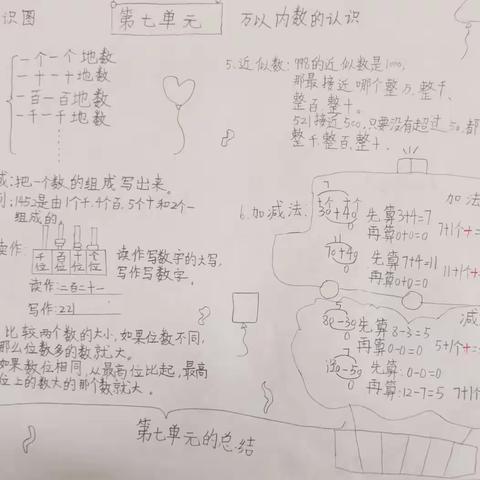 识图
第七单元
万以内数的认识
一个一个地数
一十一十地数
一百一百地数
一千一千地数
成:把一个数的组成写出来。
例:1452是由1个千.4个百.5个十和2个一
组成的。
读作:
千位 百位 十位 个位
读作写数字的大写,
写作写数字。
读作:二百二十一
写作:221
比较两个数的大小,如果位数不同,
那么位数多的数就大。
如果数位相同,从最高位比起,最高
位上的数大的那个数就大。
第七单元的总结
5.近似数:998的近似数是1000,
那最接近哪个整万,整千、
整百、整十。
521接近500,只要没有超过50.都
整千.整百、整十.
6.加减法:
加法
30+40 先算3+4=7
再算0+0=0
7+1个
70+40 先算7+4=11
再算0+0=0
11+1个
减
80-30 先算8-3=5
再算0-0=0
5+1个
120-50 先算:0-0=0
再算:12-7=5
7+1个